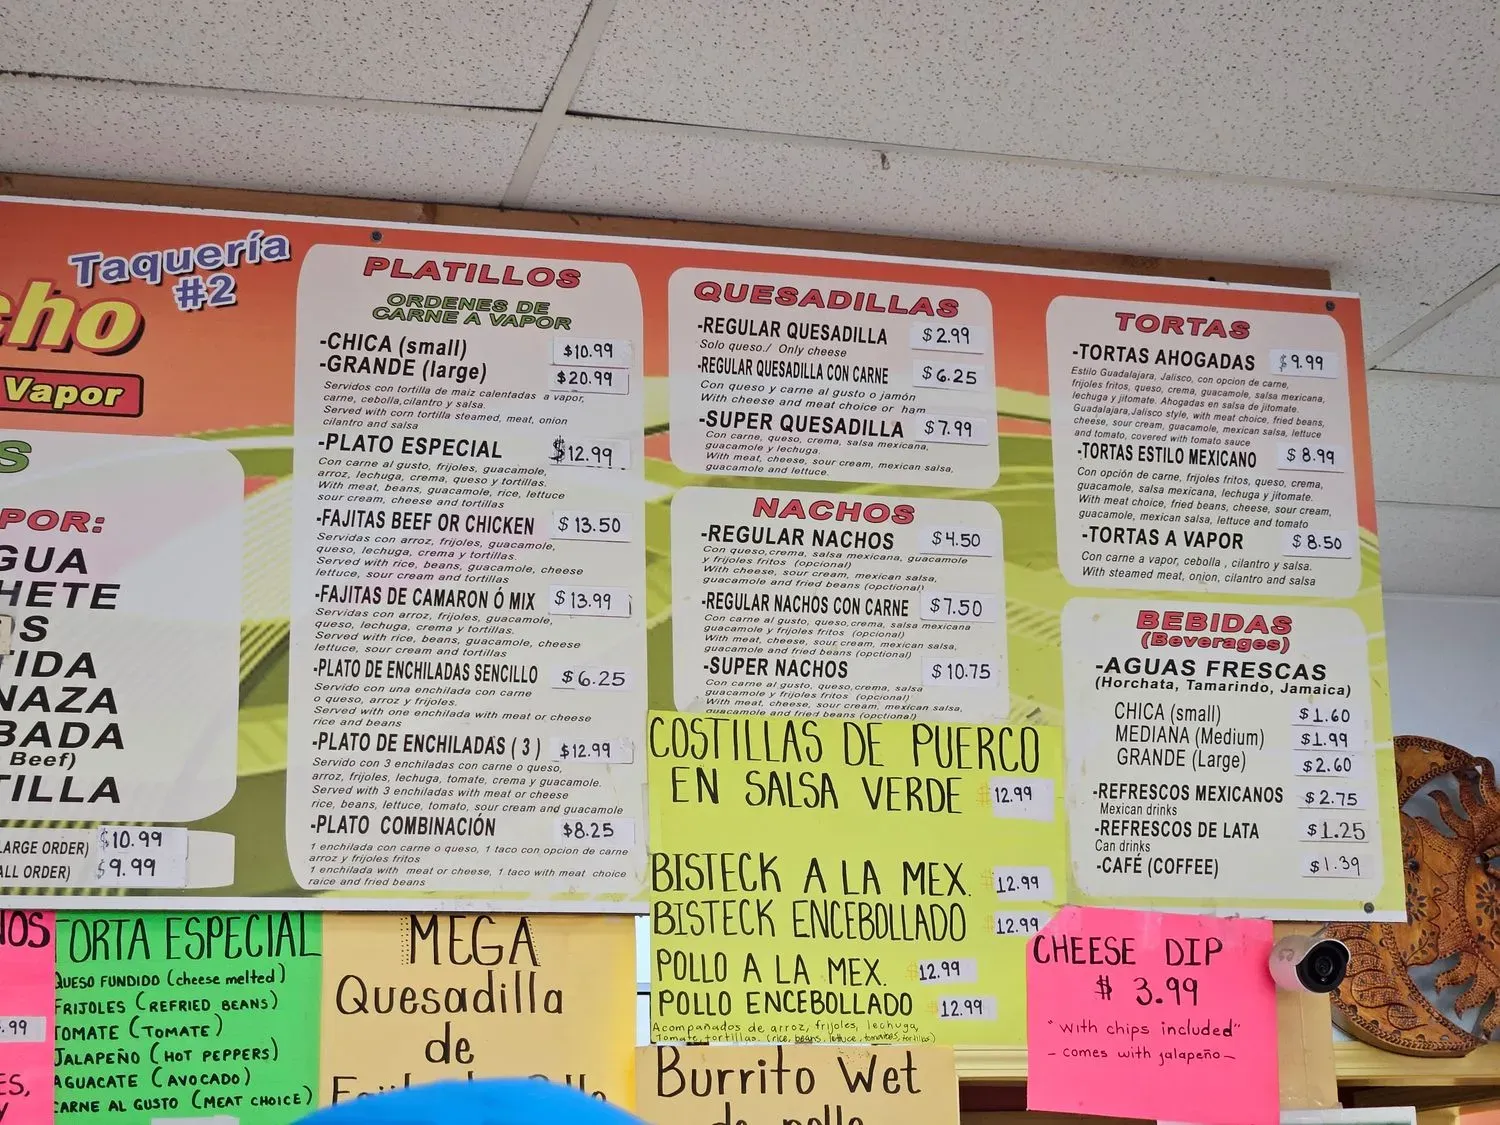 Taquería
#2
cho
Vapor
S
POR:
GUA
HETE
OS
TIDA
NAZA
BADA
Beef)
TILLA
LARGE ORDER) $10.99
ALL ORDER) $9.99
PLATILLOS
ORDENES DE
CARNE A VAPOR
-CHICA (small) $10.99
-GRANDE (large) $20.99
Servidos con tortilla de maiz calentadas a vapor,
carne, cebolla,cilantro y salsa.
Served with corn tortilla steamed, meat, onion
cilantro and salsa
-PLATO ESPECIAL $12.99
Con carne al gusto, frijoles, guacamole,
arroz, lechuga, crema, queso y tortillas.
With meat, beans, guacamole, rice, lettuce
sour cream, cheese and tortillas
-FAJITAS BEEF OR CHICKEN $13.50
Servidas con arroz, frijoles, guacamole,
queso, lechuga, crema y tortillas.
Served with rice, beans, guacamole, cheese
lettuce, sour cream and tortillas
-FAJITAS DE CAMARON Ó MIX $13.99
Servidas con arroz, frijoles, guacamole,
queso, lechuga, crema y tortillas.
Served with rice, beans, guacamole, cheese
lettuce, sour cream and tortillas
-PLATO DE ENCHILADAS SENCILLO $6.25
Servido con una enchilada con carne
o queso, arroz y frijoles.
Served with one enchilada with meat or cheese
rice and beans
-PLATO DE ENCHILADAS ( 3 ) $12.99
Servido con 3 enchiladas con carne o queso,
arroz, frijoles, lechuga, tomate, crema y guacamole.
Served with 3 enchiladas with meat or cheese
rice, beans, lettuce, tomato, sour cream and guacamole
-PLATO COMBINACIÓN $8.25
1 enchilada con carne o queso, 1 taco con opcion de carne
arroz y frijoles fritos
1 enchilada with meat or cheese, 1 taco with meat choice
raice and fried beans
QUESADILLAS
-REGULAR QUESADILLA $2.99
Solo queso./ Only cheese
-REGULAR QUESADILLA CON CARNE $6.25
Con queso y carne al gusto o jamón
With cheese and meat choice or ham
-SUPER QUESADILLA $7.99
Con carne, queso, crema, salsa mexicana,
guacamole y lechuga.
With meat, cheese, sour cream, mexican salsa,
guacamole and lettuce.
NACHOS
-REGULAR NACHOS $4.50
Con queso,crema, salsa mexicana, guacamole
y frijoles fritos (opcional)
With cheese, sour cream, mexican salsa,
guacamole and fried beans (opctional)
-REGULAR NACHOS CON CARNE $7.50
Con carne al gusto, queso,crema, salsa mexicana
guacamole y frijoles fritos (opcional)
With meat, cheese, sour cream, mexican salsa,
guacamole and fried beans (opctional)
-SUPER NACHOS $10.75
Con carne al gusto, queso,crema, salsa
guacamole y frijoles fritos (opcional)
With meat, cheese, sour cream, mexican salsa,
guacamole and fried beans (opctional)
TORTAS
-TORTAS AHOGADAS $9.99
Estilo Guadalajara, Jalisco, con opcion de carne,
frijoles fritos, queso, crema, guacamole, salsa mexicana,
lechuga y jitomate. Ahogadas en salsa de jitomate.
Guadalajara,Jalisco style, with meat choice, fried beans,
cheese, sour cream, guacamole, mexican salsa, lettuce
and tomato, covered with tomato sauce
-TORTAS ESTILO MEXICANO $8.99
Con opción de carne, frijoles fritos, queso, crema,
guacamole, salsa mexicana, lechuga y jitomate.
With meat choice, fried beans, cheese, sour cream,
guacamole, mexican salsa, lettuce and tomato
-TORTAS A VAPOR $8.50
Con carne a vapor, cebolla , cilantro y salsa.
With steamed meat, onion, cilantro and salsa
BEBIDAS
(Beverages)
-AGUAS FRESCAS
(Horchata, Tamarindo, Jamaica)
CHICA (small) $1.60
MEDIANA (Medium) $1.99
GRANDE (Large) $2.60
-REFRESCOS MEXICANOS $2.75
Mexican drinks
-REFRESCOS DE LATA $1.25
Can drinks
-CAFÉ (COFFEE) $1.39
COSTILLAS DE PUERCO
EN SALSA VERDE $12.99
BISTECK A LA MEX. 12.99
BISTECK ENCEBOLLADO 12.99
POLLO A LA MEX. 12.99
POLLO ENCEBOLLADO 12.99
Acompañados de arroz, frijoles, lechuga,
Tomate, tortillas. (rice, beans, lettuce, tomatoes, tortillas)
NOS
.99
ES,
Y
TORTA ESPECIAL
QUESO FUNDIDO (cheese melted)
FRIJOLES (REFRIED BEANS)
TOMATE (TOMATE)
JALAPEÑO (HOT PEPPERS)
AGUACATE (AVOCADO)
CARNE AL GUSTO (MEAT CHOICE)
MEGA
Quesadilla
de
Burrito Wet
de pollo
CHEESE DIP
$ 3.99
"with chips included"
- comes with jalapeño -